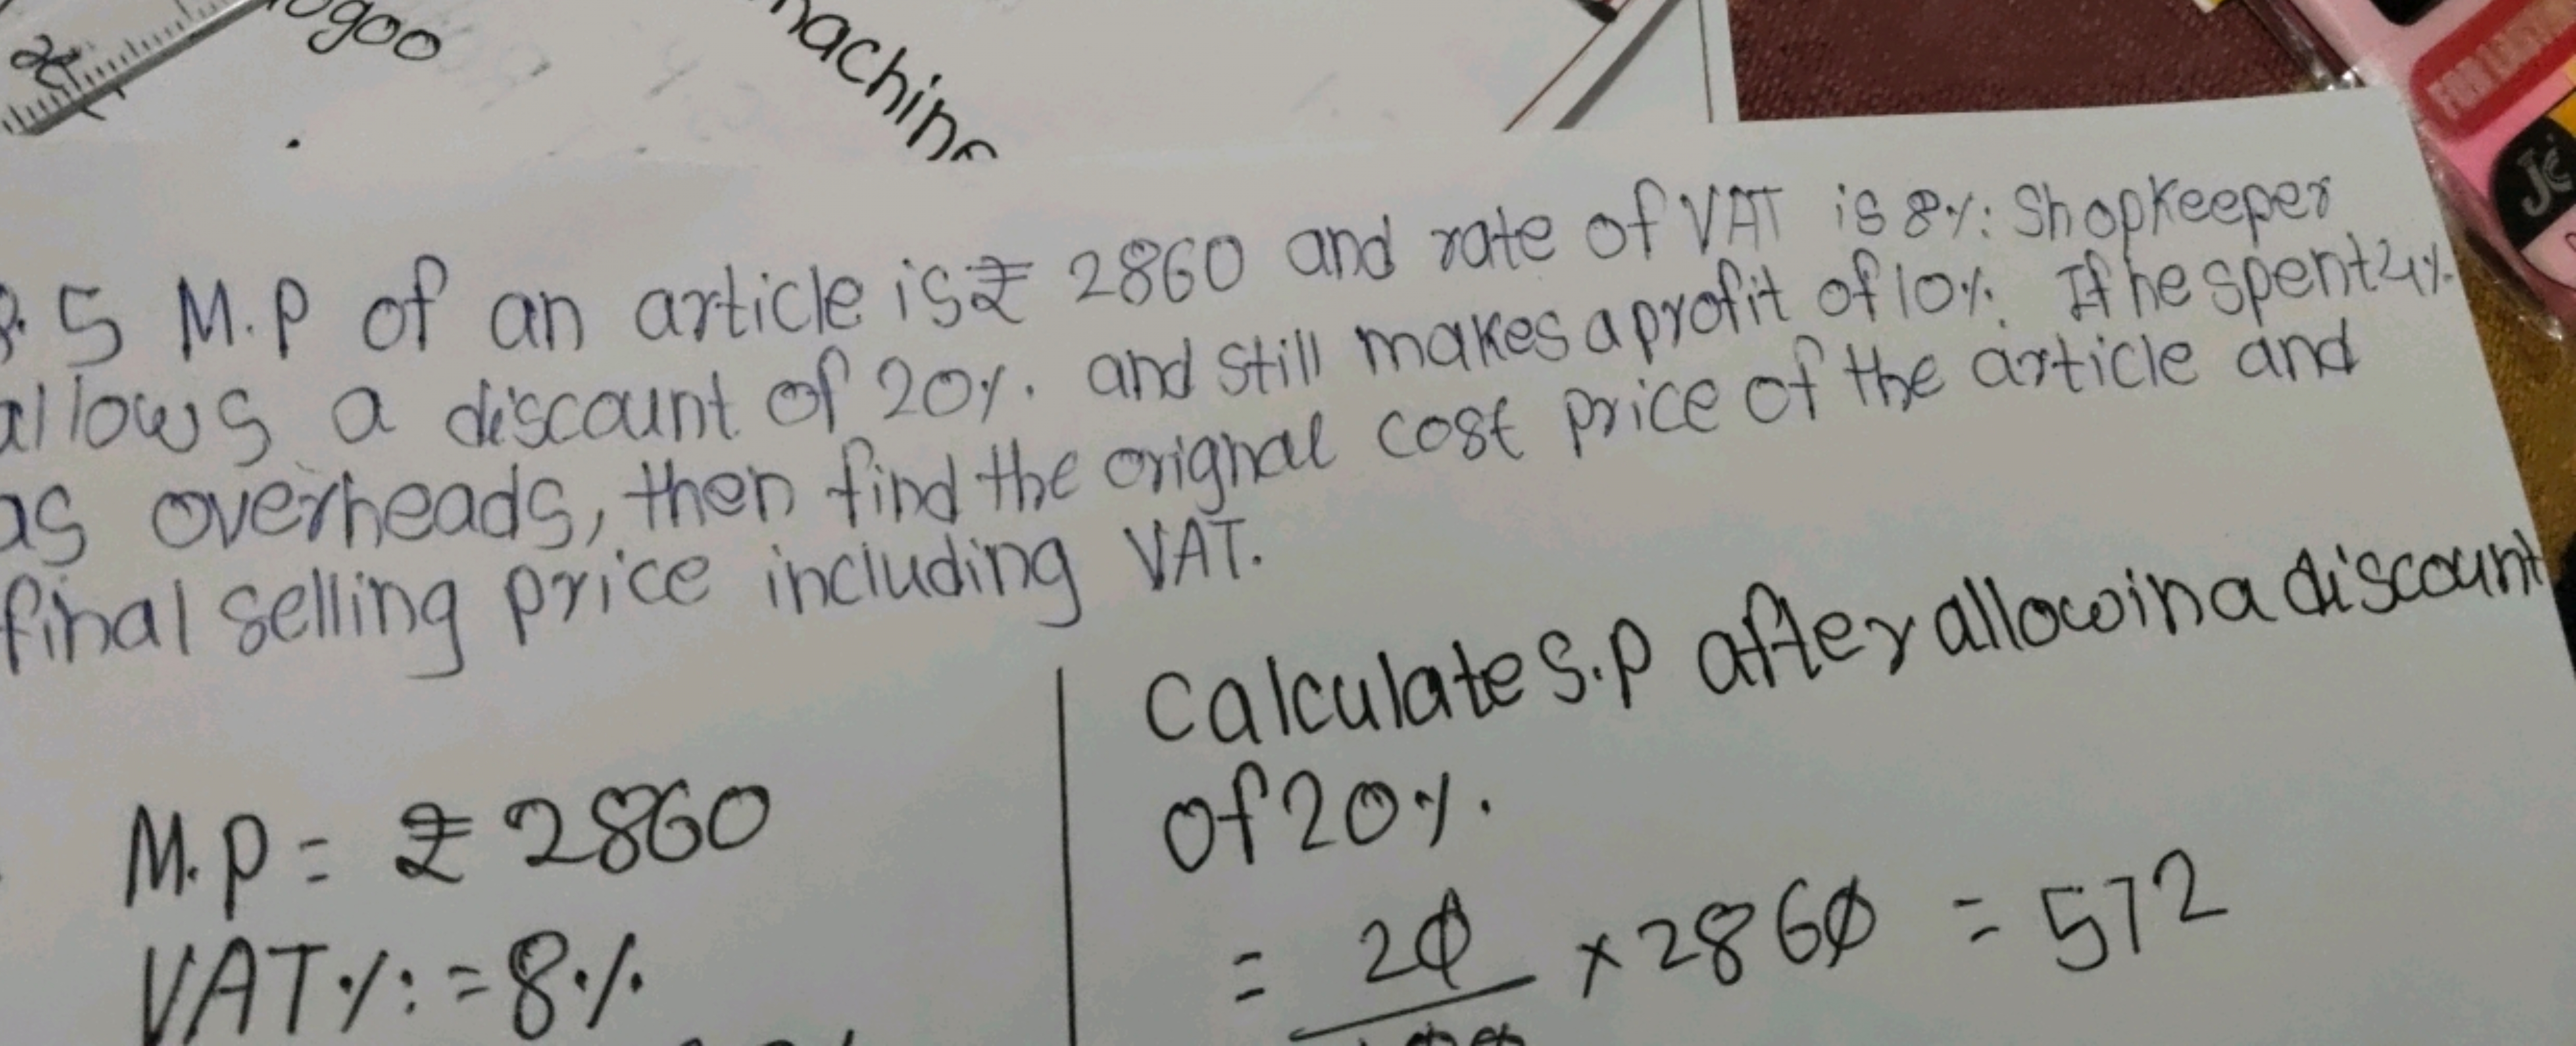 machine
5 M.P of an article is ₹ 2860 and rate of VAT is 8%. Shopkeeper
allows a discount of 20%. and still makes a profit of 10%. If he spent 4%.
as overheads, then find the orignal cost price of the article and
final selling price including VAT.
M.P = ₹ 2860
VAT% = 8%
Calculate S.P after allowin a discount
of 20%.
= 20 × 2860 = 572
100